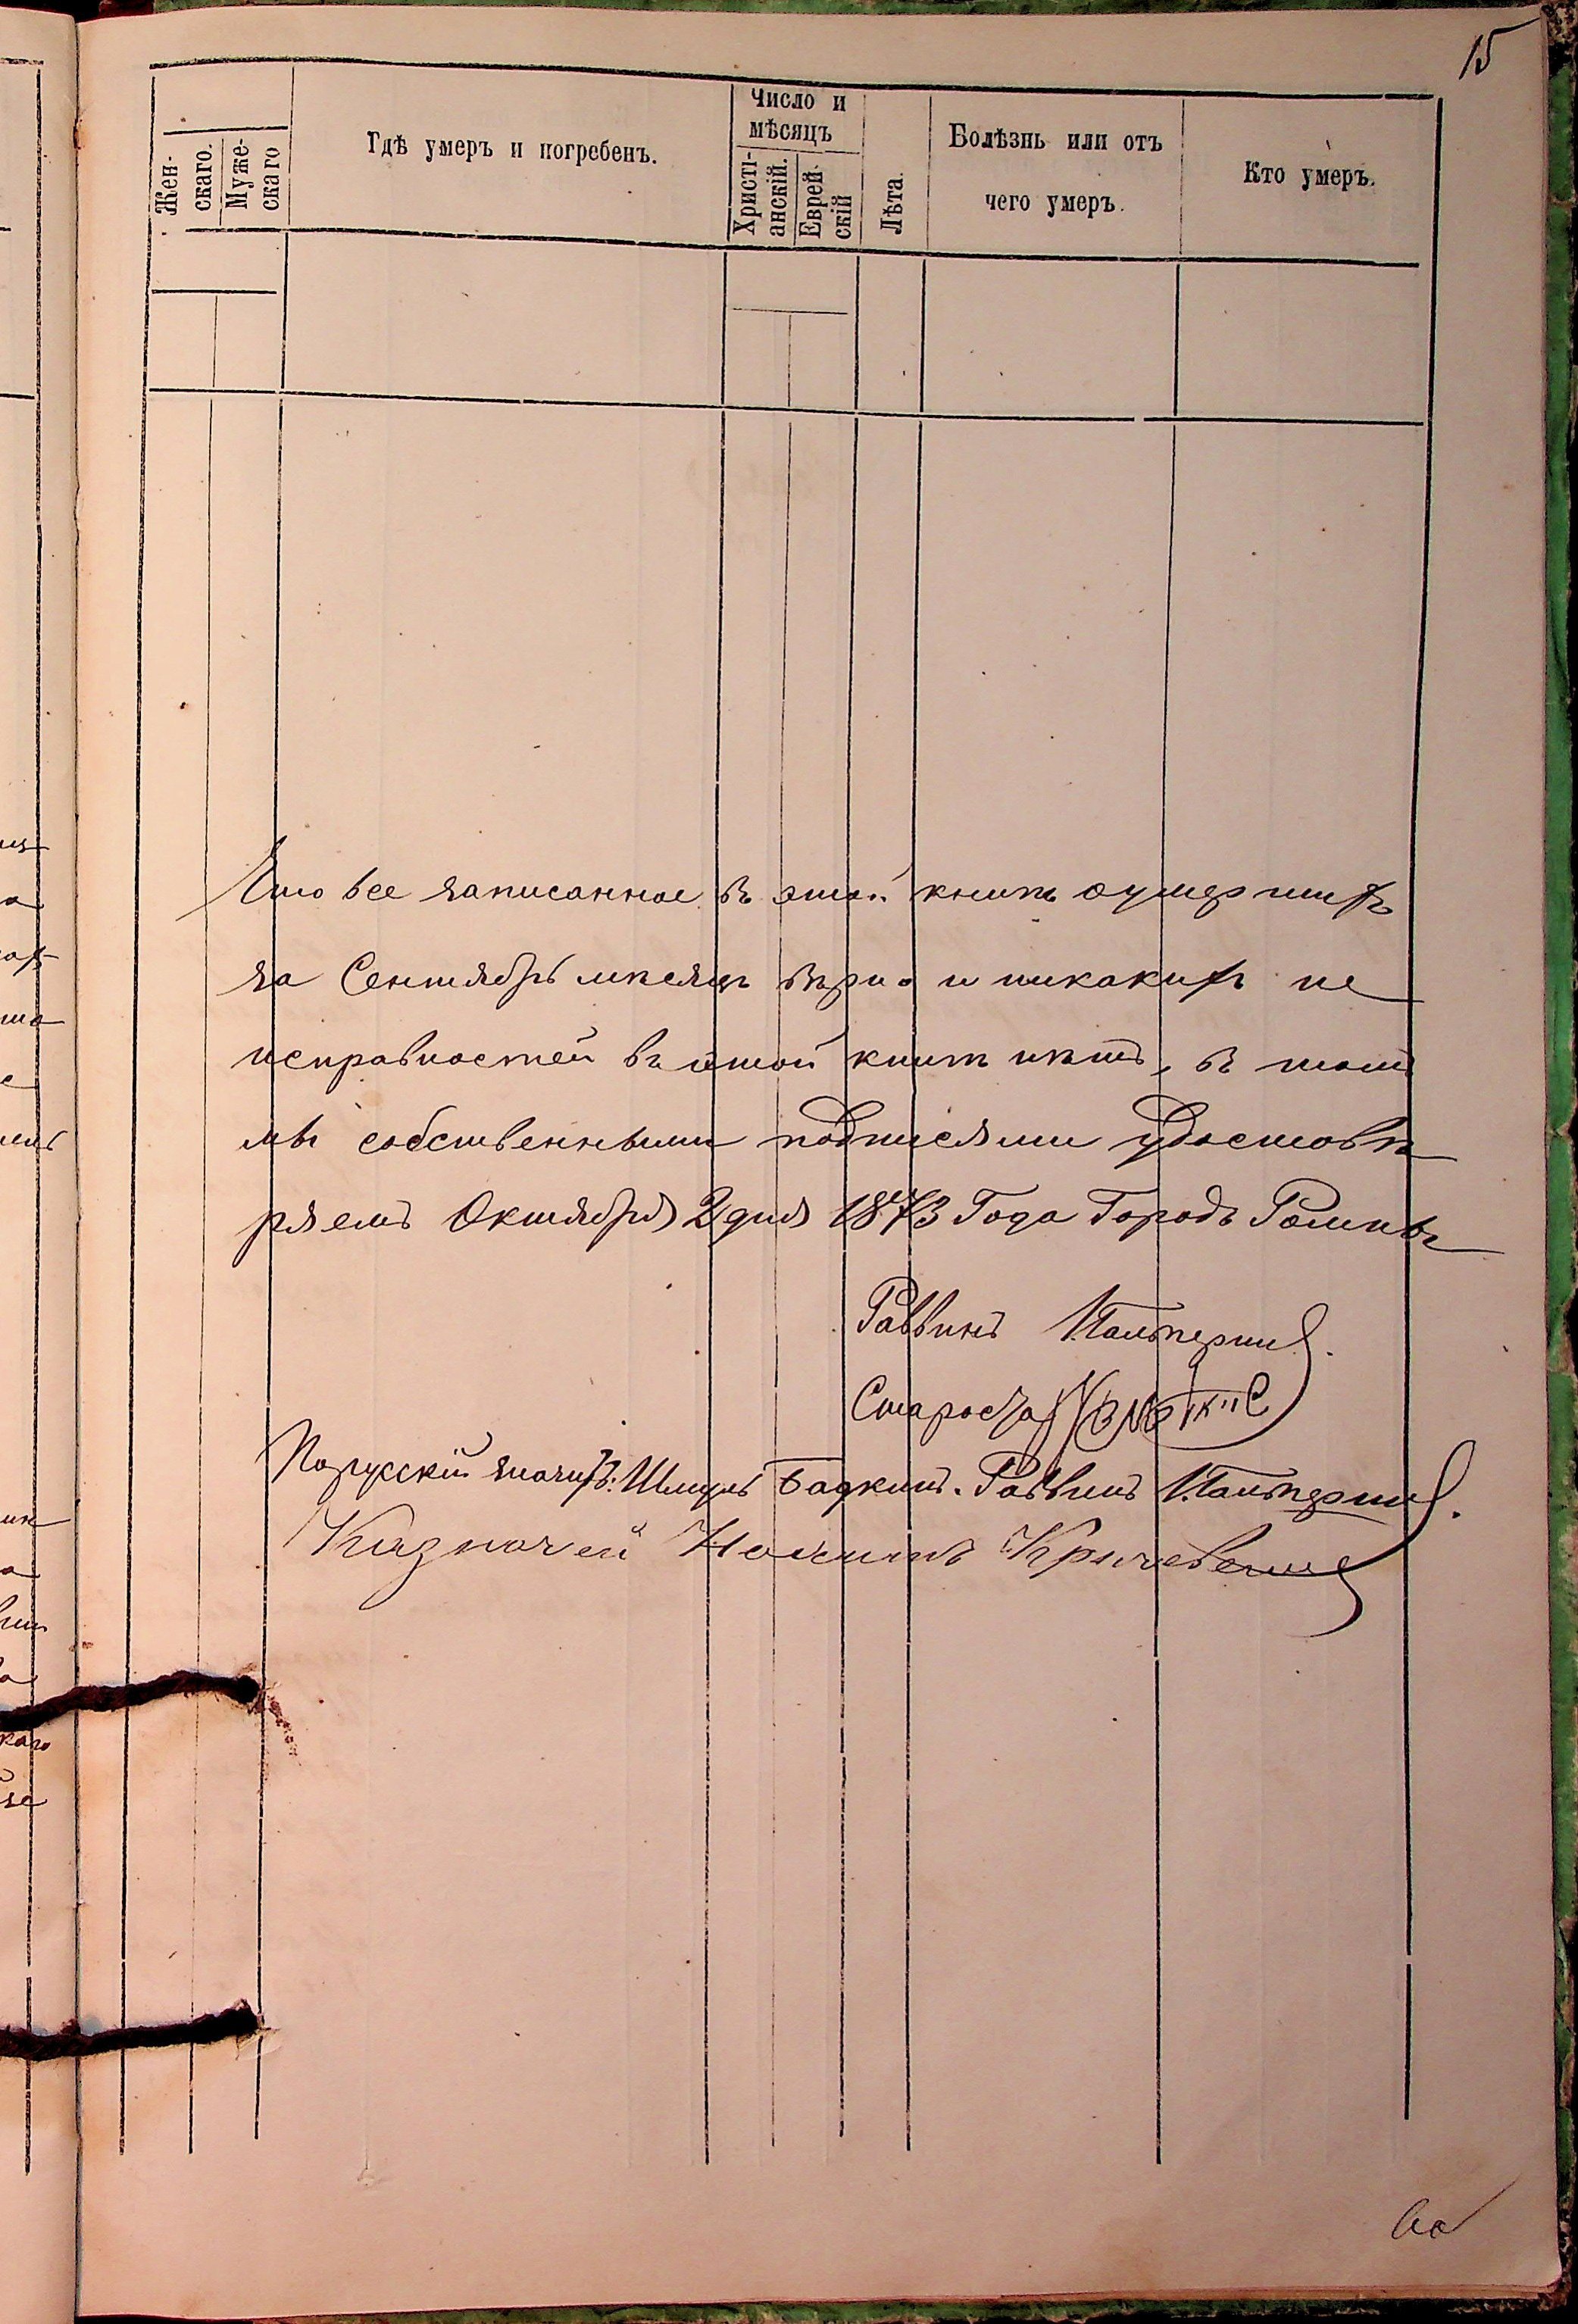 15
Жен-
скаго.
Муже-
скаго
Гдѣ умеръ и погребенъ.
Число и
мѣсяцъ
Христі-
анскій.
Еврей-
скій
Лѣта.
Болѣзнь или отъ
чего умеръ.
Кто умеръ.
Что все записанное въ этой книгѣ оумершихъ
за Сентябрь мѣсяцъ вѣрно и никакихъ не
исправностей въ этой книгѣ нѣтъ, въ томъ
мы собственными подписями удостовѣ
ряемъ Октября 2 дня 1873 Года Городъ Ромны
Раввинъ
Староста
Порусскій значитъ: Шмуль Бадкинъ. Раввинъ
Казначей Нохимъ Кричевский